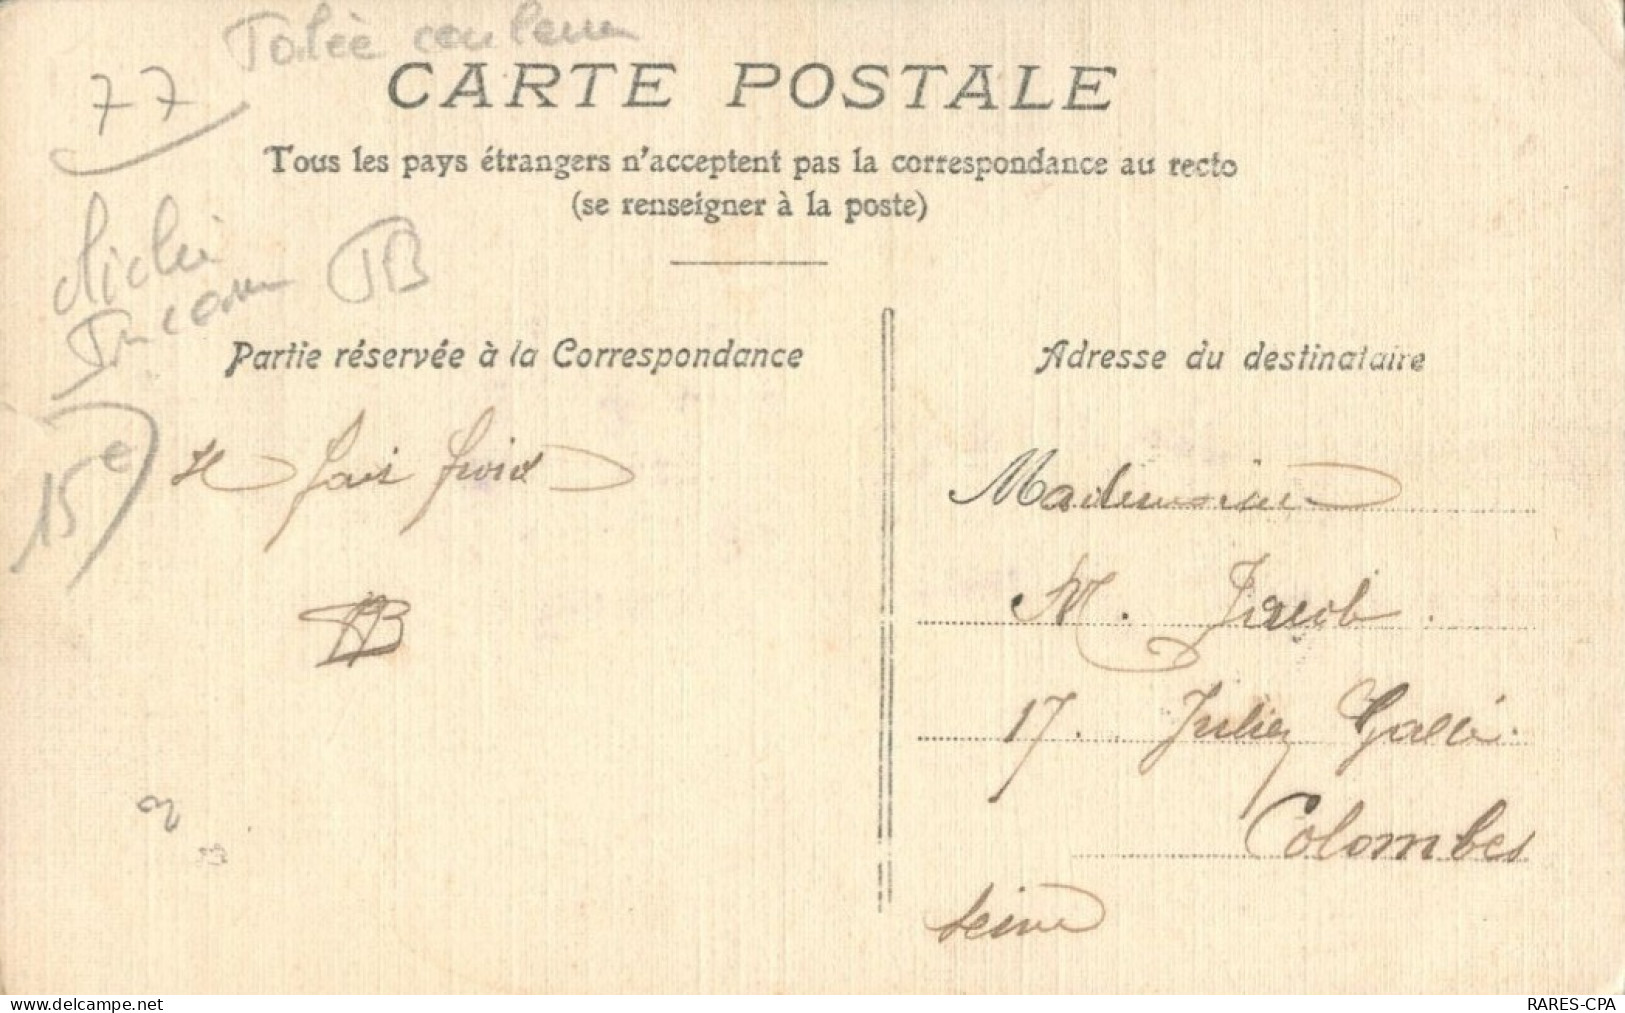 Toilée couleur
77
CARTE POSTALE
Tous les pays étrangers n'acceptent pas la correspondance au recto
(se renseigner à la poste)
cliché
TB
Partie réservée à la Correspondance
Adresse du destinataire
15e
il fait froid
Mademoiselle
M. Jacob.
17. Julien Gallé.
Colombes
Seine
www.delcampe.net
RARES-CPA